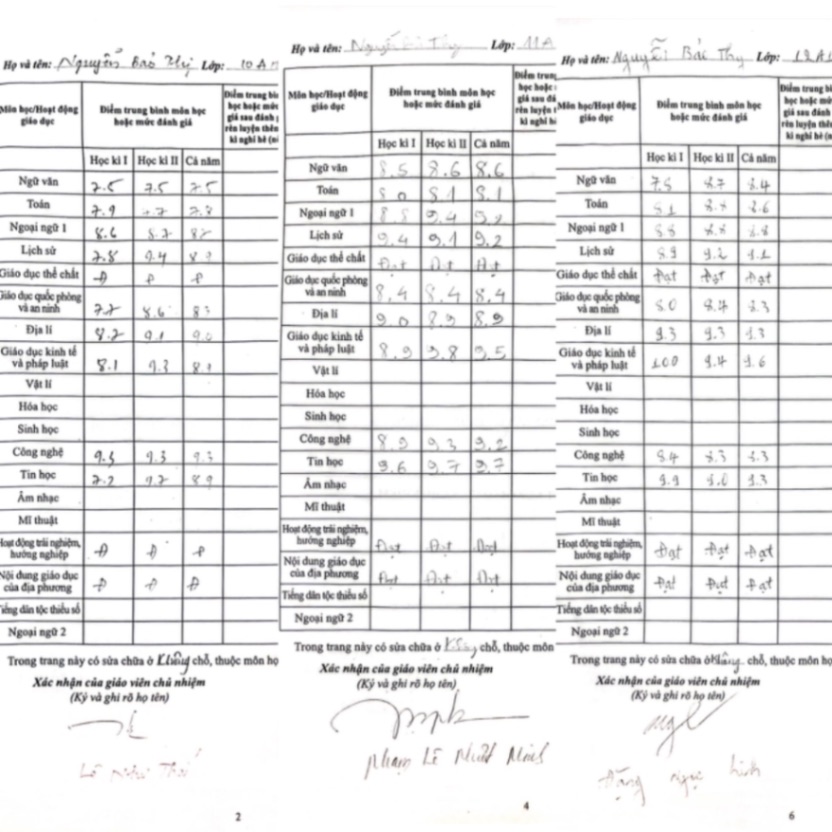 Họ và tên: Nguyễn Bảo Thy Lớp: 10A
Môn học/Hoạt động giáo dục
Điểm trung bình môn học hoặc mức đánh giá
Học kì I Học kì II Cả năm
Ngữ văn 7.5 7.5 7.5
Toán 7.9
Ngoại ngữ 1 8.6 8.7 8.7
Lịch sử 7.8 9.4 8.9
Giáo dục thể chất Đ Đ Đ
Giáo dục quốc phòng và an ninh 7.7 8.6 8.3
Địa lí 8.7 9.1 9.0
Giáo dục kinh tế và pháp luật 8.1 9.3
Vật lí
Hóa học
Sinh học
Công nghệ 9.3 9.3 9.3
Tin học 9.2 8.9
Âm nhạc
Mĩ thuật
Hoạt động trải nghiệm, hướng nghiệp Đ Đ Đ
Nội dung giáo dục của địa phương Đ Đ Đ
Tiếng dân tộc thiểu số
Ngoại ngữ 2
Trong trang này có sửa chữa ở không chỗ, thuộc môn họ
Xác nhận của giáo viên chủ nhiệm
(Ký và ghi rõ họ tên)
2
Họ và tên: Thy Lớp: 11A
Môn học/Hoạt động giáo dục
Điểm trung bình môn học hoặc mức đánh giá
Học kì I Học kì II Cả năm
Ngữ văn 8.5 8.6 8.6
Toán 8.0 8.1 8.1
Ngoại ngữ 1 8.8 9.4 9.2
Lịch sử 9.4 9.1 9.2
Giáo dục thể chất Đạt Đạt Đạt
Giáo dục quốc phòng và an ninh 8.4 8.4 8.4
Địa lí 9.0 8.9 8.9
Giáo dục kinh tế và pháp luật 8.9 9.8 9.5
Vật lí
Hóa học
Sinh học
Công nghệ 8.9 9.3 9.2
Tin học 9.6 9.7 9.7
Âm nhạc
Mĩ thuật
Hoạt động trải nghiệm, hướng nghiệp Đạt Đạt Đạt
Nội dung giáo dục của địa phương Đạt Đạt Đạt
Tiếng dân tộc thiểu số
Ngoại ngữ 2
Trong trang này có sửa chữa ở không chỗ, thuộc môn
Xác nhận của giáo viên chủ nhiệm
(Ký và ghi rõ họ tên)
Phạm Lê
4
Họ và tên: Nguyễn Bảo Thy Lớp: 12A1
Môn học/Hoạt động giáo dục
Điểm trung bình môn học hoặc mức đánh giá
Học kì I Học kì II Cả năm
Ngữ văn 7.5 8.7
Toán 8.1
Ngoại ngữ 1 8.8 8.8 8.8
Lịch sử 8.9 9.2 9.1
Giáo dục thể chất Đạt Đạt Đạt
Giáo dục quốc phòng và an ninh 8.0 8.4 8.3
Địa lí 9.3 9.3 9.3
Giáo dục kinh tế và pháp luật 10.0 9.4 9.6
Vật lí
Hóa học
Sinh học
Công nghệ 8.4 8.3 8.3
Tin học 9.9 9.0 9.3
Âm nhạc
Mĩ thuật
Hoạt động trải nghiệm, hướng nghiệp Đạt Đạt Đạt
Nội dung giáo dục của địa phương Đạt Đạt Đạt
Tiếng dân tộc thiểu số
Ngoại ngữ 2
Trong trang này có sửa chữa ở không chỗ, thuộc môn họ
Xác nhận của giáo viên chủ nhiệm
(Ký và ghi rõ họ tên)
Đặng Ngọc Linh
6